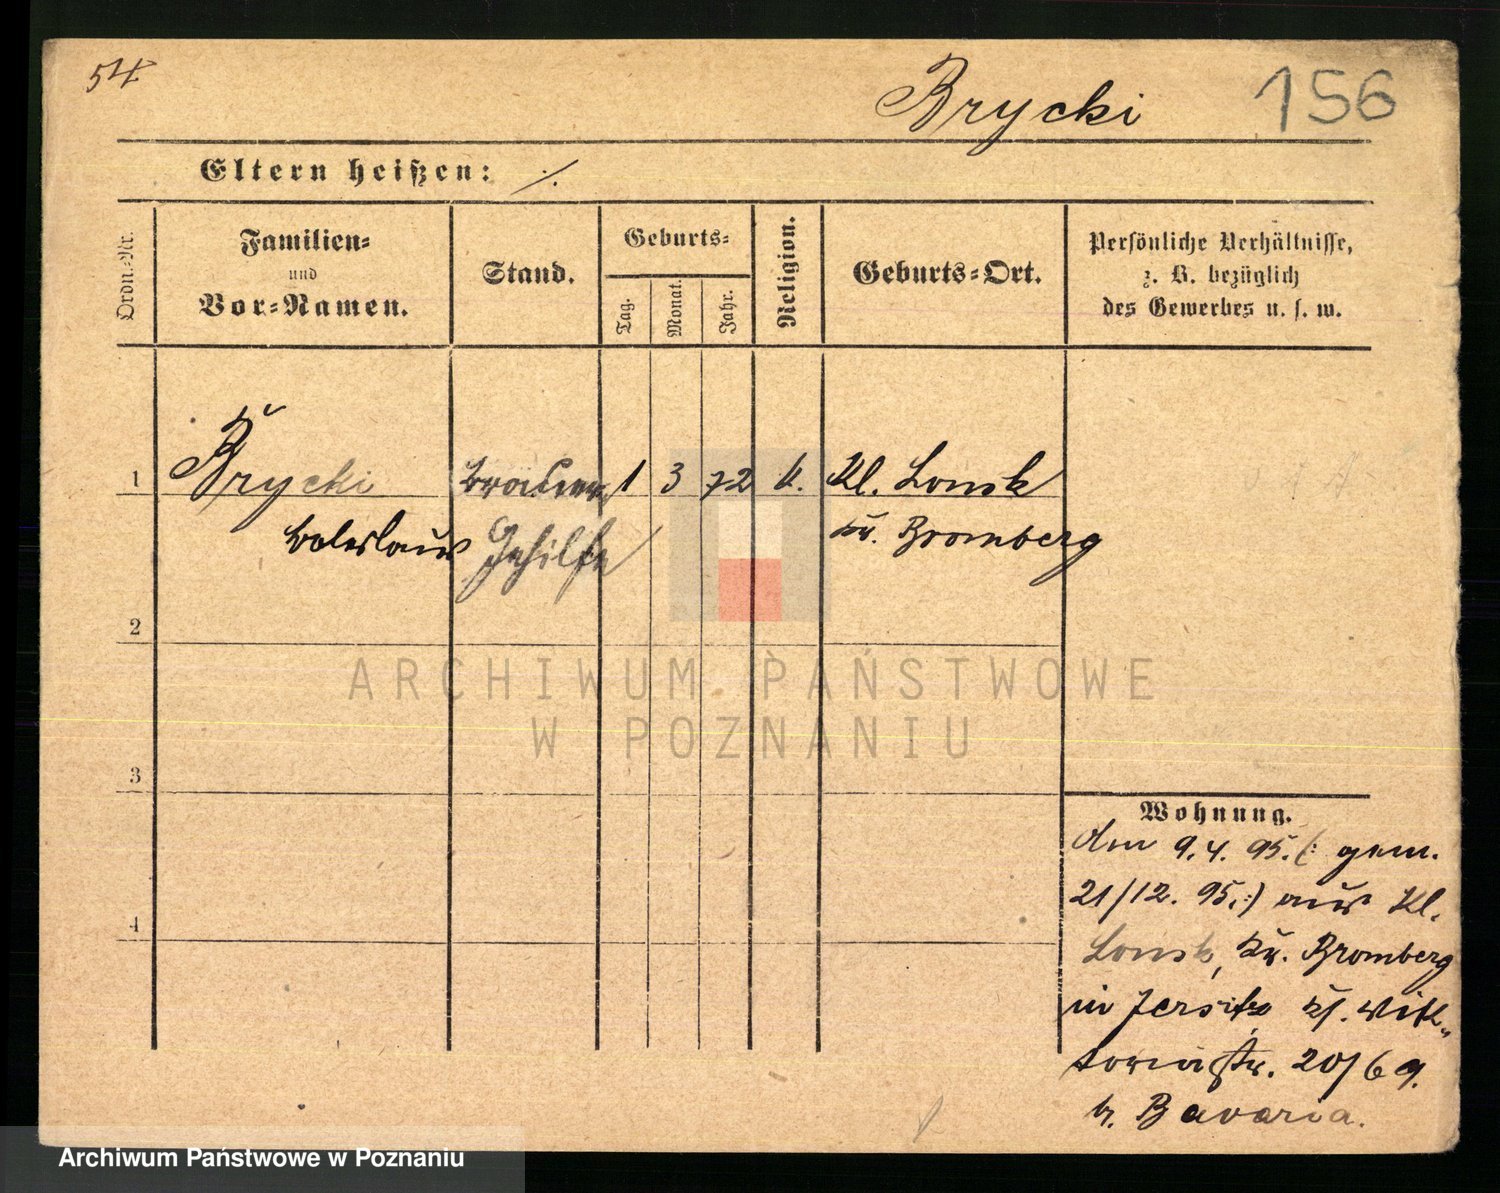 54
Brycki
156
Eltern heißen: ·/.
Ordn.-Nr.
Familien-
und
Vor-Namen.
Stand.
Geburts-
Tag.
Monat.
Jahr.
Religion.
Geburts-Ort.
Persönliche Verhältnisse,
z. B. bezüglich
des Gewerbes u. s. w.
1 Brycki Brauer 1 3 72 k. Kl. Lonsk
Boleslaus Gehilfe Kr. Bromberg
2
3
4
Wohnung.
Am 9.4.95. (: gem.
21/12. 95. :) aus Kl.
Lonsk, Kr. Bromberg
in Jersitz Vik-
toriastr. 20/69.
b. Bavaria.
ARCHIWUM PAŃSTWOWE
W POZNANIU
Archiwum Państwowe w Poznaniu